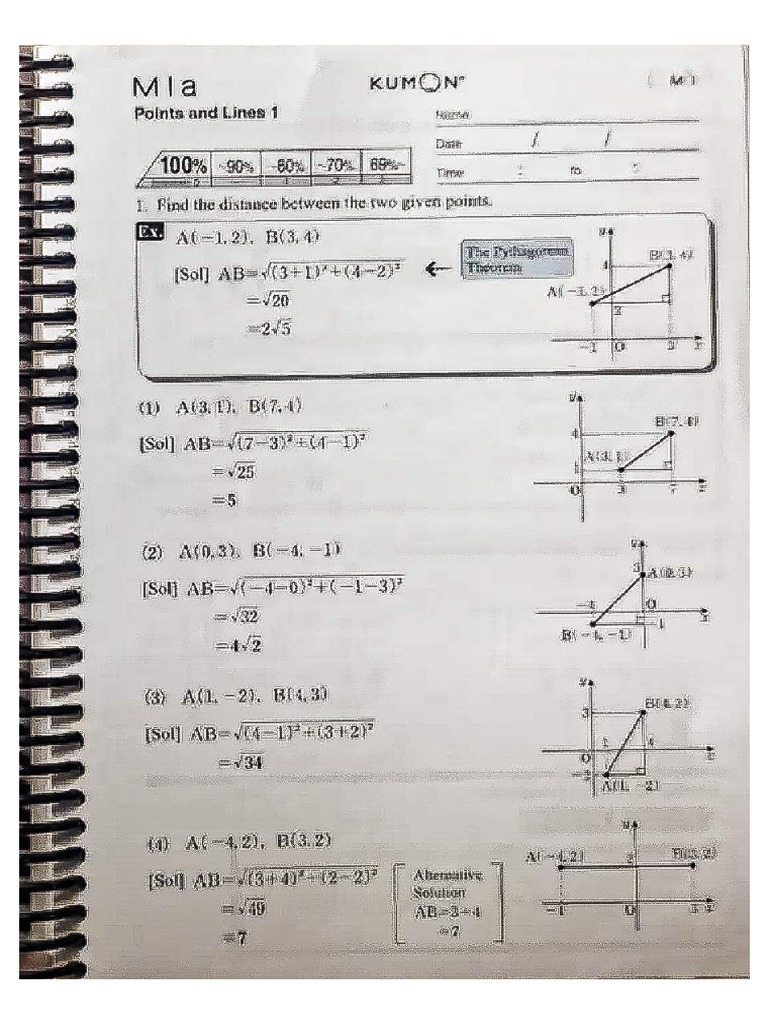 M1a
KUMON
M 1
Points and Lines 1
Name
Date / /
Time : to :
100% ~90% ~80% ~70% 69%~
1. Find the distance between the two given points.
Ex. A(−1, 2), B(3, 4)
[Sol] AB=√(3+1)²+(4−2)²
=√20
=2√5
The Pythagorean
Theorem
y
B(3, 4)
4
A(−1, 2)
2
−1 O 3 x
(1) A(3, 1), B(7, 4)
[Sol] AB=√(7−3)²+(4−1)²
=√25
=5
y
B(7, 4)
4
A(3, 1)
1
O 3 7 x
(2) A(0, 3), B(−4, −1)
[Sol] AB=√(−4−0)²+(−1−3)²
=√32
=4√2
y
3 A(0, 3)
−4 O x
−1
B(−4, −1)
(3) A(1, −2), B(4, 3)
[Sol] AB=√(4−1)²+(3+2)²
=√34
y
B(4, 3)
3
1 4
O x
−2
A(1, −2)
(4) A(−4, 2), B(3, 2)
[Sol] AB=√(3+4)²+(2−2)²
=√49
=7
Alternative
Solution
AB=3+4
=7
y
A(−4, 2) 2 B(3, 2)
−4 O 3 x